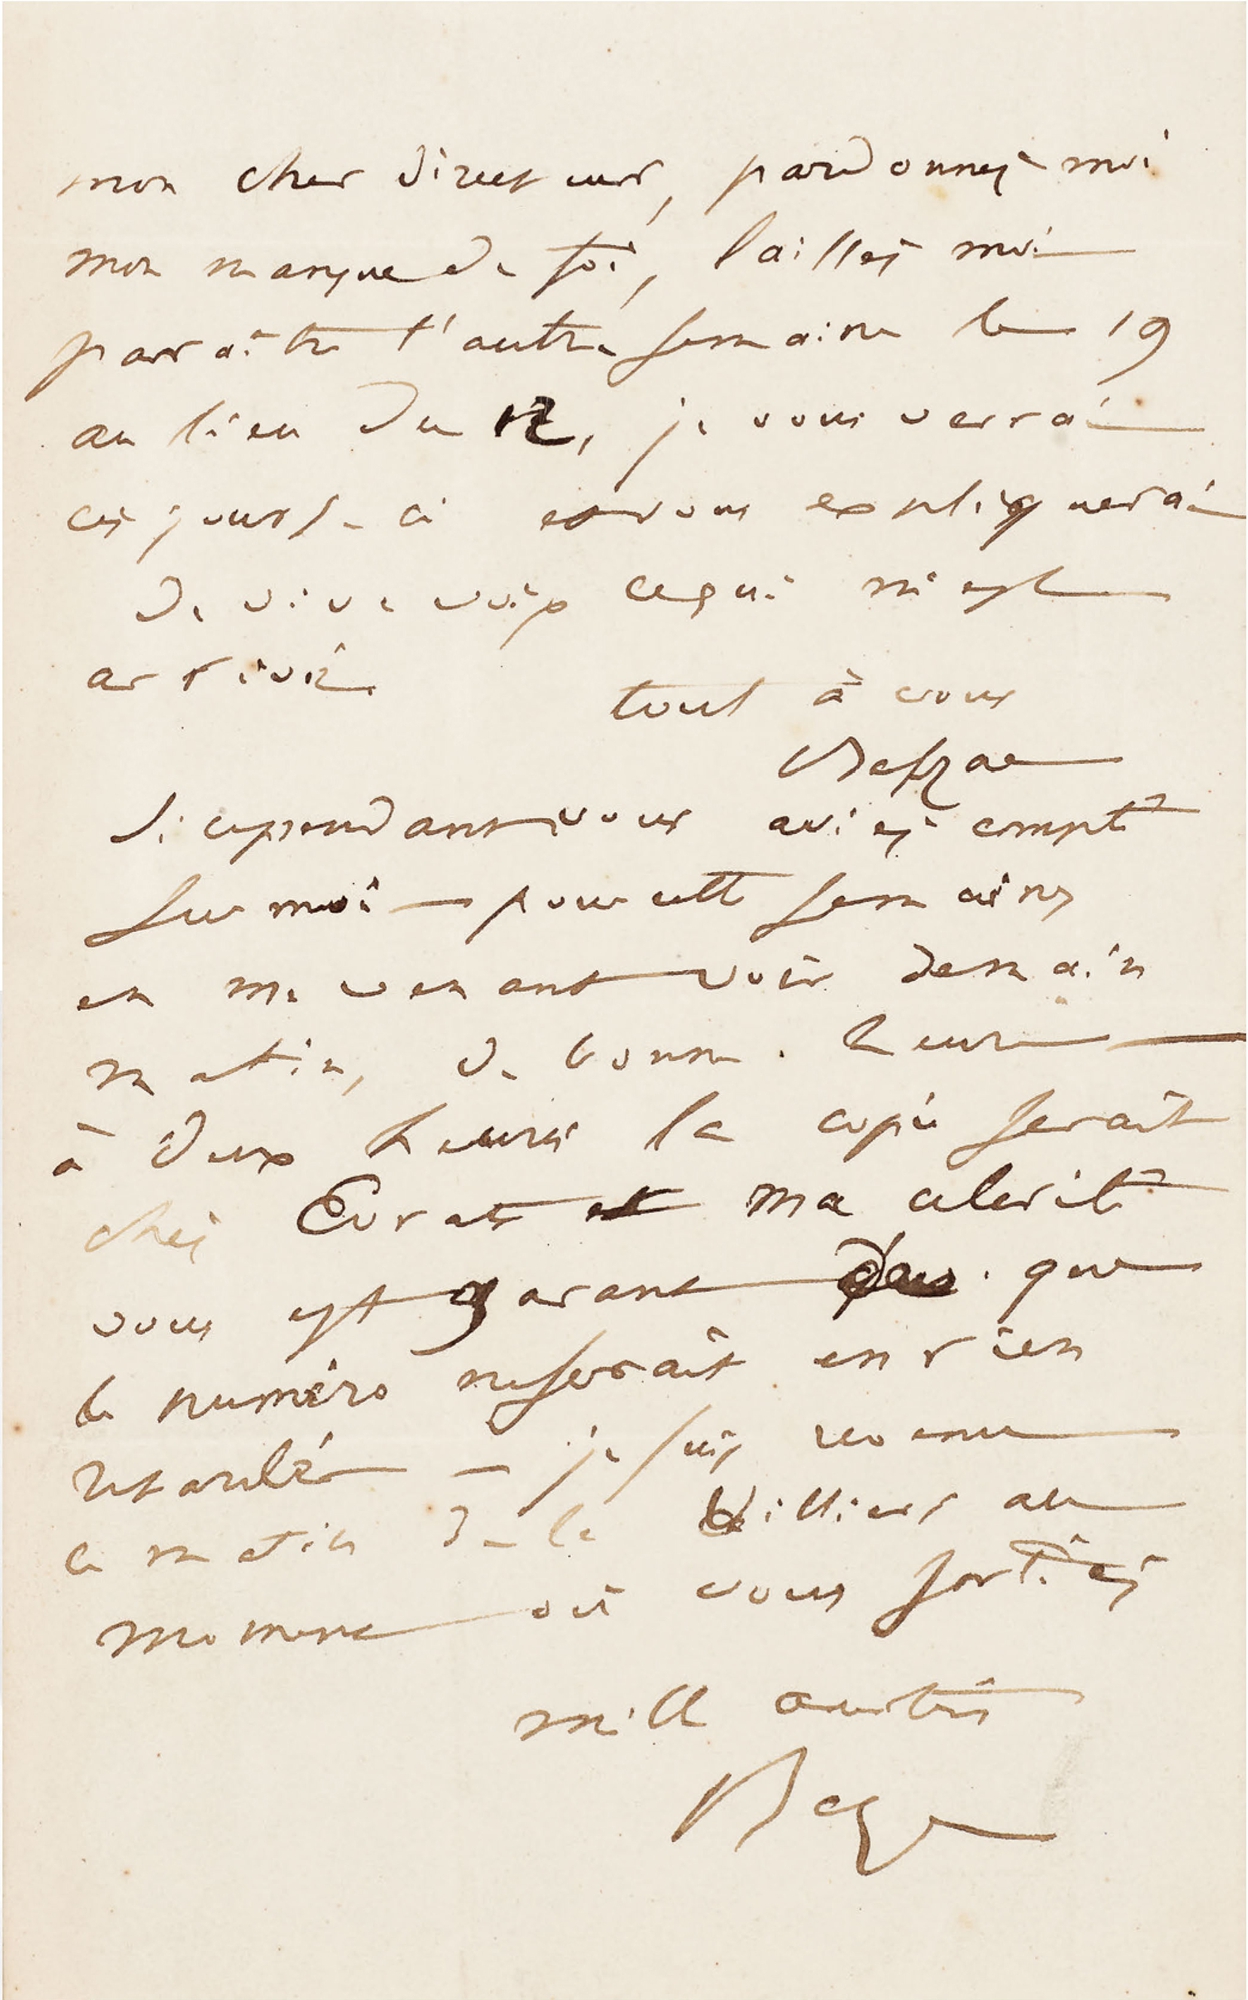 mon cher directeur, pardonnez-moi
mon manque de foi, laissez moi
paraître l'autre semaine le 19
au lieu du 12, je vous verrai
ces jours-ci et vous expliquerai
de vive voix ce qui m'est
arrivé.
tout à vous
Balzac
Si cependant vous aviez compté
sur moi — pour cette semaine
en me venant voir demain
matin, de bonne heure
à deux heures la copie serait
chez Everat et ma célérité
vous est garant que
le numéro ne serait en rien
retardé — je suis revenu
ce matin de la Villiers au
moment où vous sortiez
mille amitiés
Bac